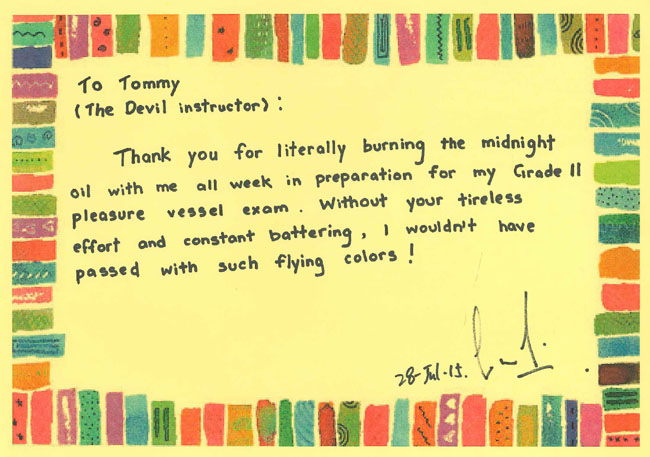 To Tommy
(The Devil instructor) :
Thank you for literally burning the midnight
oil with me all week in preparation for my Grade II
pleasure vessel exam. Without your tireless
effort and constant battering, I wouldn't have
passed with such flying colors !
28-Jul-15.